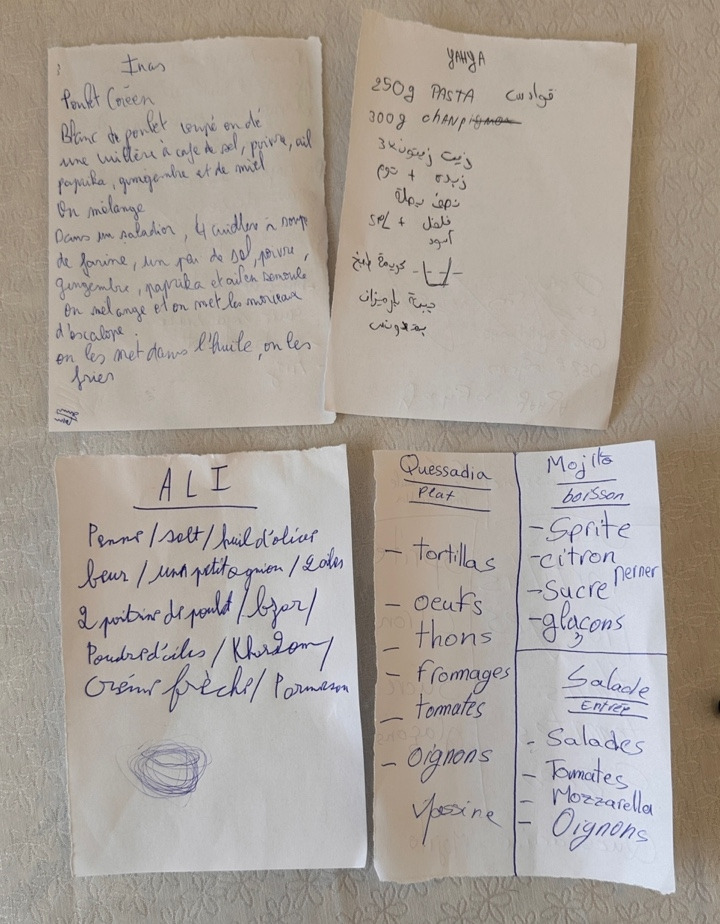 Inas
Poulet Coréen
Blanc de poulet coupé on dé
une cuillère à cafe de sel, poivre, ail
paprika, gingembre et de miel
On mélange
Dans un saladier, 4 cuillers à soupe
de farine, un peu de sel, poivre,
gingembre, paprika et ail en
on mélange et on met les morceaux
d'escalope.
on les met dans l'huile, on les
frier
YAHYA
250g PASTA قوادس
300g CHAMPIGNON
3x زيت زيتون
زبدة + ثوم
نصف بصلة
فلفل + SEL
أسود
كريمة طبخ
جبنة بارميزان
بعدونس
ALI
Penne / salt / huil d'olive
beur / unn petit ognion / 2 ailes
2 poitrine de poulet / bzar /
Poudre d'ailes /
Crémé frèche / Parmeson
Quessadia
Plat
- tortillas
- oeufs
- thons
- fromages
- tomates
- Oignons
Yassine
Mojito
boisson
- Sprite
- citron
- Sucre
- glaçons
Salade
Entrée
- Salades
- Tomates
- Mozzarella
- Oignons